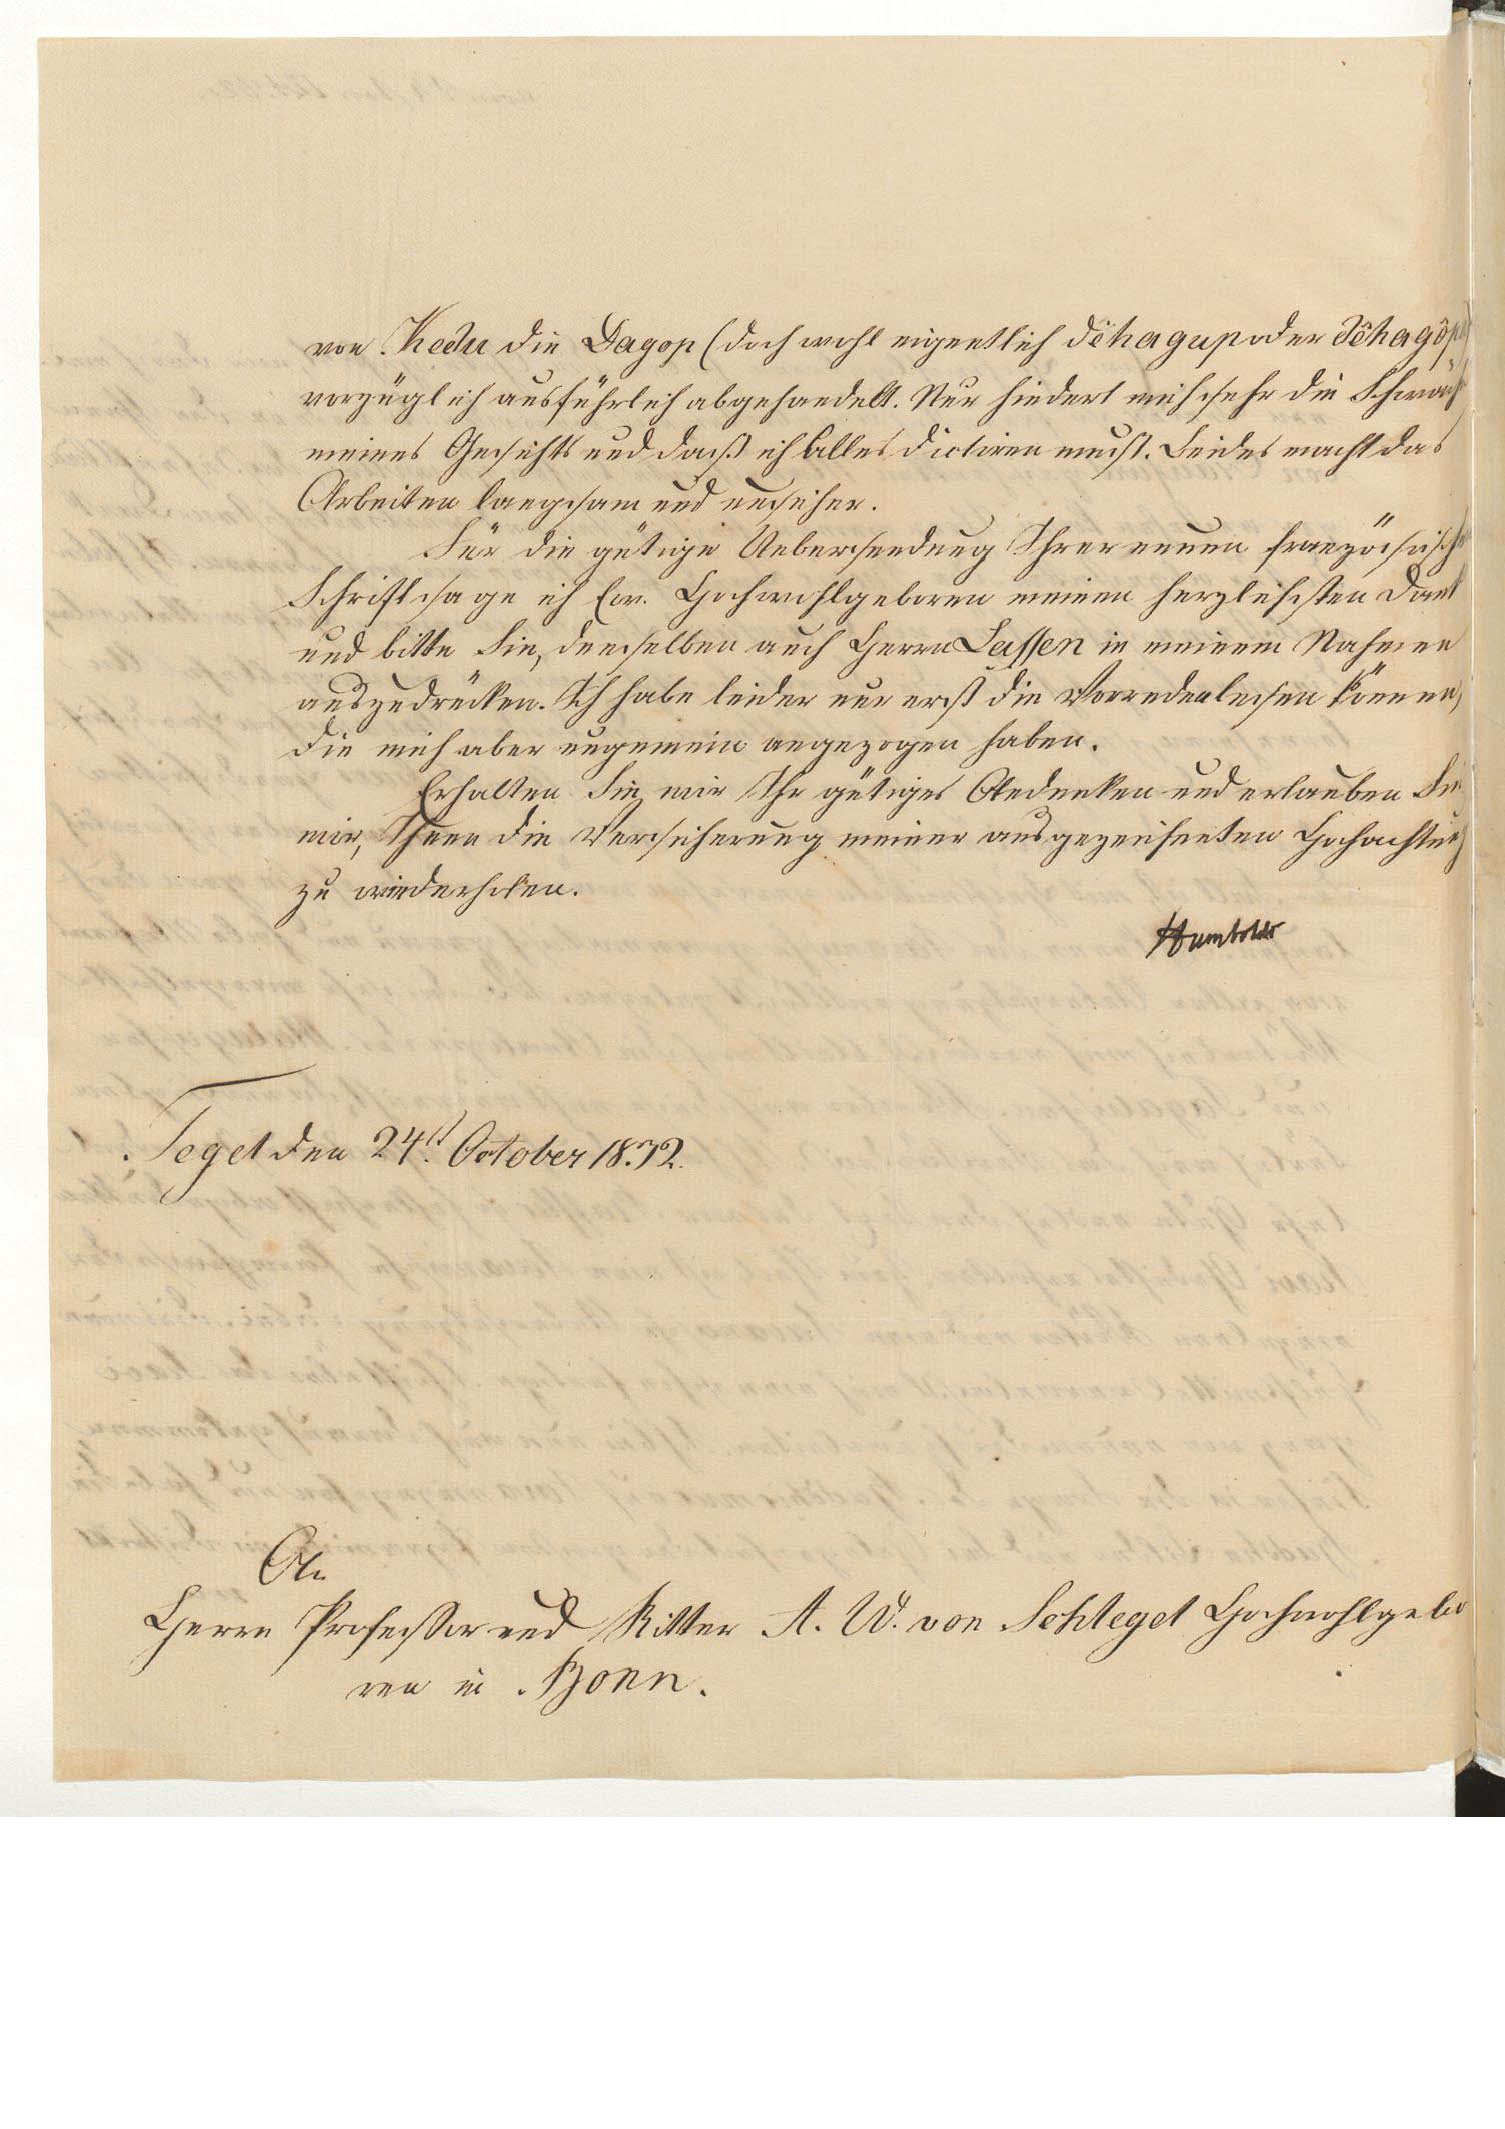 von Kedu die Dagop (doch wohl eigentlich dêhagup oder dêhagôpa)
vorzüglich ausführlich abgehandelt. Nur hindert mich sehr die Schwäch
meines Gesichts und daß ich Alles dictiren muß. Beides macht das
Arbeiten langsam und unsicher.
Für die gütige Uebersendung Ihrer neuen französische
Schrift sage ich Ew. Hochwohlgeboren meinen herzlichsten Dank
und bitte Sie, denselben auch Herrn Lassen in meinem Nahmen
auszudrücken. Ich habe leider nur erst die Vorreden lesen können,
die mich aber ungemein angezogen haben.
Erhalten Sie mir Ihr gütiges Andenken und erlauben Sie
mir, Ihnen die Versicherung meiner ausgezeichneten Hochachtung
zu wiederholen.
Humboldt
Tegel den 24t October 1832.
An
Herrn Professor und Ritter A. W. von Schlegel Hochwohlgebo
ren in Bonn.